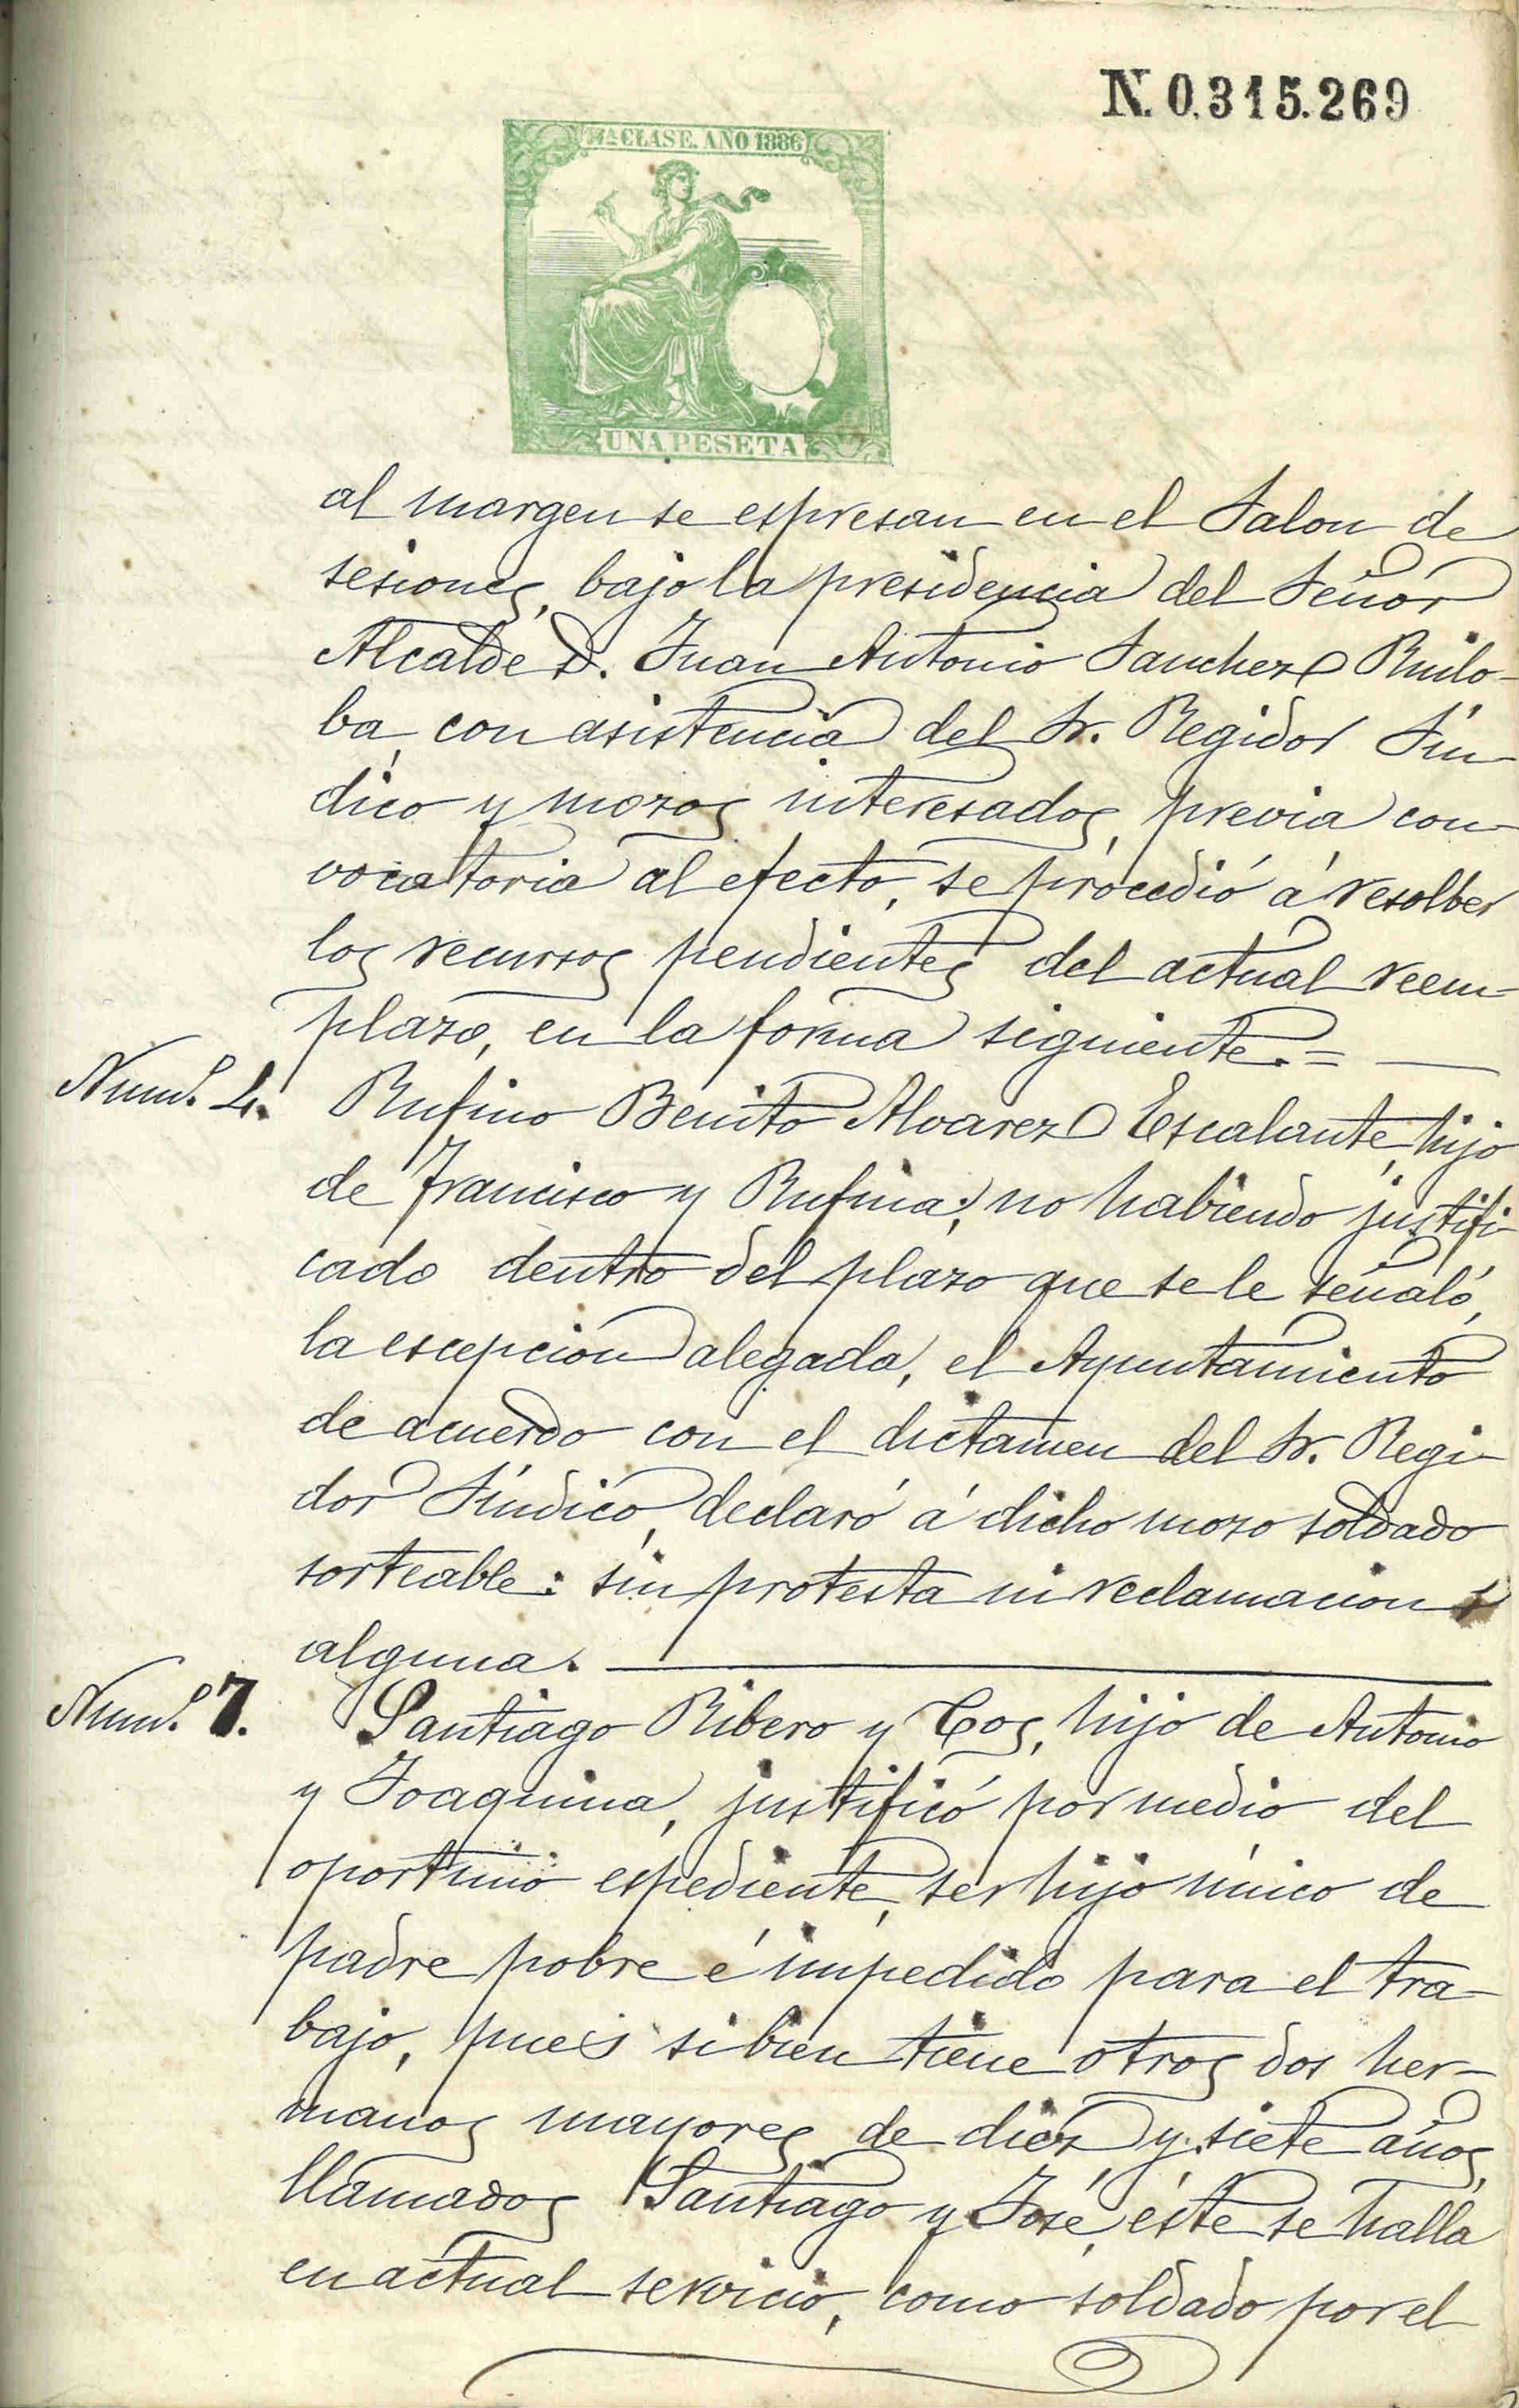 N. 0.315.269
11ª CLASE. AÑO 1886
UNA PESETA
al margen se espresan en el Salon de
sesiones, bajo la presidencia del Señor
Alcalde D. Juan Antonio Sanchez Ruilo-
ba, con asistencia del Sr. Regidor Sín-
dico y mozos interesados, previa con-
vocatoria al efecto, se procedió á resolber
los recursos pendientes del actual reem-
plazo, en la forma siguiente.=
Num.º 4. Rufino Benito Alvarez Escalante, hijo
de Francisco y Rufina; no habiendo justifi-
cado dentro del plazo que se le señaló,
la escepcion alegada, el Ayuntamiento
de acuerdo con el dictamen del Sr. Regi-
dor Síndico, declaró á dicho mozo soldado
sorteable: sin protesta ni reclamacion
alguna.
Num.º 7. Santiago Ribero y Cos, hijo de Antonio
y Joaquina, justificó por medio del
oportuno espediente, ser hijo único de
padre pobre é impedido para el tra-
bajo, pues si bien tiene otros dos her-
manos mayores de diez y siete años,
llamados Santiago y José, éste se halla
en actual servicio, como soldado por el